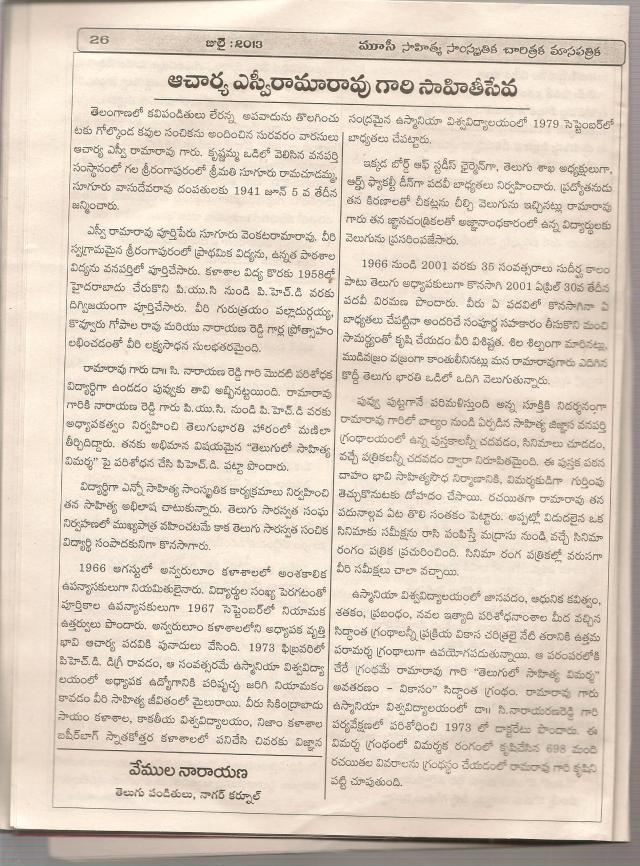 26
జులై : 2013
మూసీ సాహిత్య సాంస్కృతిక చారిత్రక మాసపత్రిక
ఆచార్య ఎస్వీరామారావు గారి సాహితీసేవ
తెలంగాణలో కవిపండితులు లేరన్న అపవాదును తొలగించు
టకు గోల్కొండ కవుల సంచికను అందించిన సురవరం వారసులు
ఆచార్య ఎస్వీ రామారావు గారు. కృష్ణమ్మ ఒడిలో వెలిసిన వనపర్తి
సంస్థానంలో గల శ్రీరంగాపురంలో శ్రీమతి సూగూరు రామచూడమ్మ,
సూగూరు వాసుదేవరావు దంపతులకు 1941 జూన్ 5 వ తేదీన
జన్మించారు.
ఎస్వీ రామారావు పూర్తిపేరు సూగూరు వెంకటరామారావు. వీరి
స్వగ్రామమైన శ్రీరంగాపురంలో ప్రాథమిక విద్యను, ఉన్నత పాఠశాల
విద్యను వనపర్తిలో పూర్తిచేసారు. కళాశాల విద్య కొరకు 1958లో
హైదరాబాదు చేరుకొని పి.యు.సి నుండి పి.హెచ్.డి వరకు
దిగ్విజయంగా పూర్తిచేసారు. వీరి గురుత్రయం పల్లాదుర్గయ్య,
కొవ్వూరు గోపాల రావు మరియు నారాయణ రెడ్డి గార్ల ప్రోత్సాహం
లభించడంతో వీరి లక్ష్యసాధన సులభతరమైంది.
రామారావు గారు డా॥ సి. నారాయణ రెడ్డి గారి మొదటి పరిశోధక
విద్యార్థిగా ఉండడం పువ్వుకు తావి అబ్బినట్టయింది. రామారావు
గారికి నారాయణ రెడ్డి గారు పి.యు.సి నుండి పి.హెచ్.డి వరకు
అధ్యాపకత్వం నిర్వహించి తెలుగుభారతి హారంలో మణిలా
తీర్చిదిద్దారు. తనకు అభిమాన విషయమైన "తెలుగులో సాహిత్య
విమర్శ" పై పరిశోధన చేసి పిహెచ్.డి. పట్టా పొందారు.
విద్యార్థిగా ఎన్నో సాహిత్య సాంస్కృతిక కార్యక్రమాలు నిర్వహించి
తన సాహిత్య అభిలాష చాటుకున్నారు. తెలుగు సారస్వత సంఘ
నిర్వహణలో ముఖ్యపాత్ర వహించటమే కాక తెలుగు సారస్వత సంచిక
విద్యార్థి సంపాదకునిగా కొనసాగారు.
1966 ఆగస్టులో అన్వరులూం కళాశాలలో అంశకాలిక
ఉపన్యాసకులుగా నియమితులైనారు. విద్యార్థుల సంఖ్య పెరగటంతో
పూర్తికాల ఉపన్యాసకులుగా 1967 సెప్టెంబర్‌లో నియామక
ఉత్తర్వులు పొందారు. అన్వరులూం కళాశాలలోని అధ్యాపక వృత్తి
భావి ఆచార్య పదవికి పునాదులు వేసింది. 1973 ఫిబ్రవరిలో
పిహెచ్.డి. డిగ్రీ రావడం, ఆ సంవత్సరమే ఉస్మానియా విశ్వవిద్యా
లయంలో అధ్యాపక ఉద్యోగానికి పరిపృచ్ఛ జరిగి నియామకం
కావడం వీరి సాహిత్య జీవితంలో మైలురాయి. వీరు సికింద్రాబాదు
సాయం కళాశాల, కాకతీయ విశ్వవిద్యాలయం, నిజాం కళాశాల
బషీర్‌బాగ్ స్నాతకోత్తర కళాశాలలో పనిచేసి చివరకు విజ్ఞాన
వేముల నారాయణ
తెలుగు పండితులు, నాగర్ కర్నూల్
సంద్రమైన ఉస్మానియా విశ్వవిద్యాలయంలో 1979 సెప్టెంబర్‌లో
బాధ్యతలు చేపట్టారు.
ఇక్కడ బోర్డ్ ఆఫ్ స్టడీస్ ఛైర్మెన్‌గా, తెలుగు శాఖ అధ్యక్షులుగా,
ఆర్ట్స్ ఫ్యాకల్టీ డీన్‌గా పదవీ బాధ్యతలు నిర్వహించారు. ప్రద్యోతనుడు
తన కిరణాలతో చీకట్లను చీల్చి వెలుగును ఇచ్చినట్లు రామారావు
గారు తన జ్ఞానచంద్రికలతో అజ్ఞానాంధకారంలో ఉన్న విద్యార్థులకు
వెలుగును ప్రసరింపజేసారు.
1966 నుండి 2001 వరకు 35 సంవత్సరాలు సుదీర్ఘ కాలం
పాటు తెలుగు అధ్యాపకులుగా కొనసాగి 2001 ఏప్రిల్ 30వ తేదీన
పదవీ విరమణ పొందారు. వీరు ఏ పదవిలో కొనసాగినా ఏ
బాధ్యతలు చేపట్టినా అందరిచే సంపూర్ణ సహకారం తీసుకొని మంచి
సామర్థ్యంతో కృషి చేయడం వీరి విశిష్టత. శిల శిల్పంగా మారినట్లు,
ముడివజ్రం వజ్రంగా కాంతులీనినట్లు మన రామారావుగారు ఎదిగిన
కొద్దీ తెలుగు భారతి ఒడిలో ఒదిగి వెలుగుతున్నారు.
పువ్వు పుట్టగానే పరిమళిస్తుంది అన్న సూక్తికి నిదర్శనంగా
రామారావు గారిలో బాల్యం నుండి ఏర్పడిన సాహిత్య జిజ్ఞాస వనపర్తి
గ్రంథాలయంలో ఉన్న పుస్తకాలన్నీ చదవడం, సినిమాలు చూడడం,
వచ్చే పత్రికలన్నీ చదవడం ద్వారా నిరూపితమైంది. ఈ పుస్తక పఠన
దాహం భావి సాహిత్యసౌధ నిర్మాణానికి, విమర్శకుడిగా గుర్తింపు
తెచ్చుకొనుటకు దోహదం చేసాయి. రచయితగా రామారావు తన
పదునాల్గవ ఏట తొలి సంతకం పెట్టారు. అప్పట్లో విడుదలైన ఒక
సినిమాకు సమీక్షను రాసి పంపిస్తే మద్రాసు నుండి వచ్చే సినిమా
రంగం పత్రిక ప్రచురించింది. సినిమా రంగ పత్రికల్లో వరుసగా
వీరి సమీక్షలు చాలా వచ్చాయి.
ఉస్మానియా విశ్వవిద్యాలయంలో జానపదం, ఆధునిక కవిత్వం,
శతకం, ప్రబంధం, నవల ఇత్యాది పరిశోధనాంశాల మీద వచ్చిన
సిద్ధాంత గ్రంథాలన్నీ ప్రక్రియ వికాస చరిత్రలై నేటి తరానికి ఉత్తమ
పరామర్శ గ్రంథాలుగా ఉపయోగపడుతున్నాయి. ఆ పరంపరలోకి
చేరే గ్రంథమే రామారావు గారి "తెలుగులో సాహిత్య విమర్శ"
అవతరణం - వికాసం" సిద్ధాంత గ్రంథం. రామారావు గారు
ఉస్మానియా విశ్వవిద్యాలయంలో డా॥ సి.నారాయణరెడ్డి గారి
పర్యవేక్షణలో పరిశోధించి 1973 లో డాక్టరేటు పొందారు. ఈ
విమర్శ గ్రంథంలో విమర్శక రంగంలో కృషిచేసిన 698 మంది
రచయితల వివరాలను గ్రంథస్థం చేయడంలో రామారావు గారి కృషిని
పట్టి చూపుతుంది.